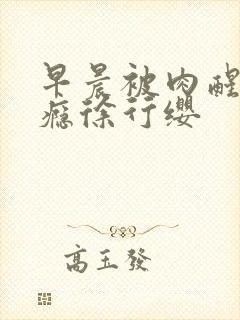 早晨被肉醒
瘾徐行缨
高玉發